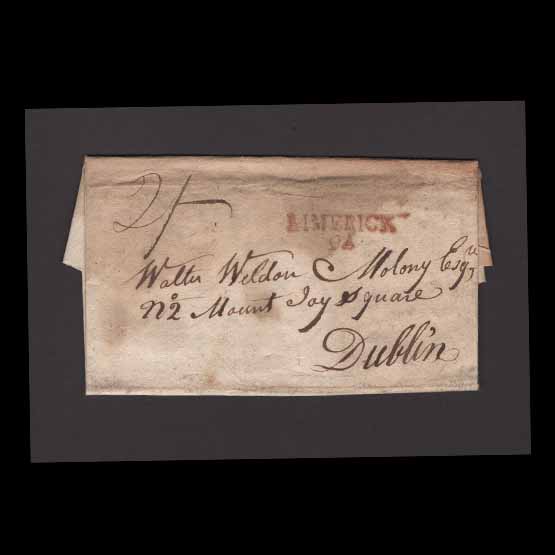 2/-
LIMERICK
94
Walter Weldon Molony Esqr
No 2 Mount Joy Square
Dublin